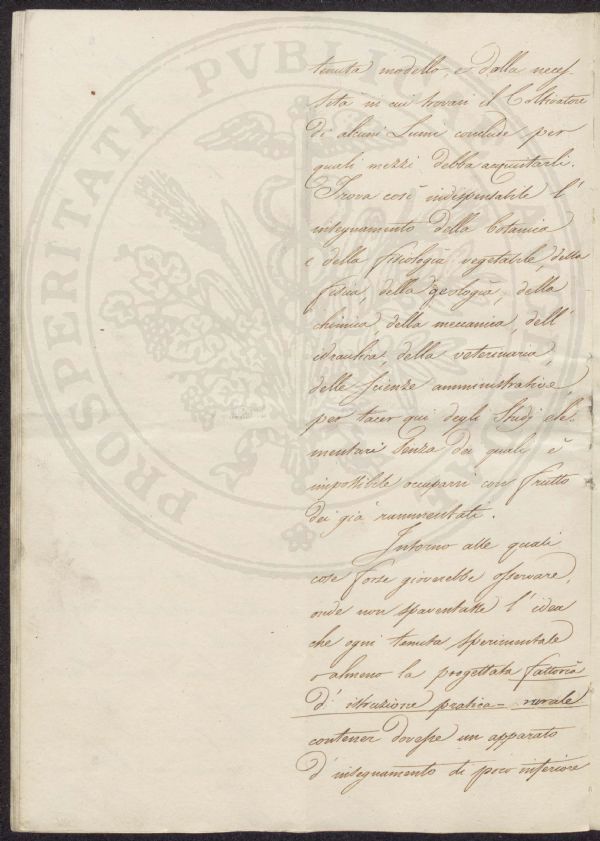 tenuta modello, e dalla neces-
sità in cui trovasi il Coltivatore
di alcuni Lumi conclude per
quali mezzi debba acquistarli.
Trova così indispensabile l'
insegnamento della botanica
e della fisiologia vegetabile, della
fisica, della geologia, della
chimica, della meccanica, dell'
idraulica, della veterinaria,
delle scienze amministrative,
per tacer qui degli Studj ele-
mentari senza dei quali è
impossibile occuparsi con frutto
dei già rammentati.
Intorno alle quali
cose forse gioverebbe osservare,
onde non spaventasse l'idea
che ogni tenuta sperimentale
o almeno la progettata fattoria
d'istruzione pratica-rurale
contener dovesse un apparato
d'insegnamento di poco inferiore
PROSPERITATI PVBLICAE